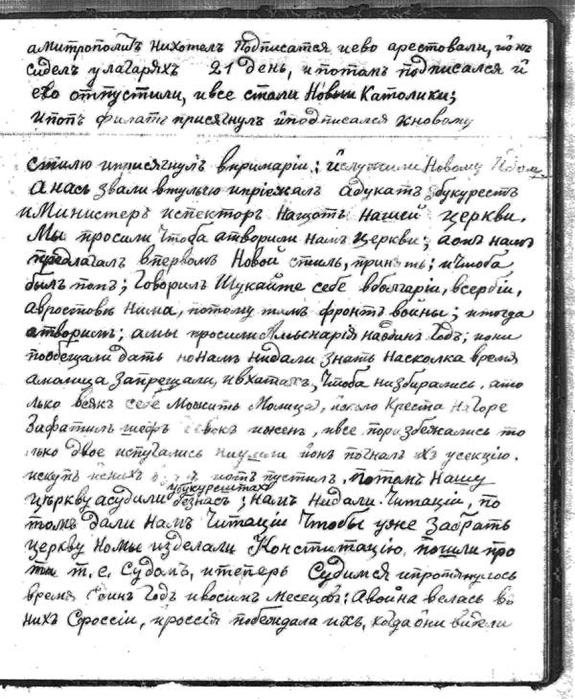 амитрополиъ нихотел Подписатся иево арестовали, йонъ
сидел улагаряхъ 21 день, ипотомъ подписался й
ево оттпустили, ивсе стали Новыи Католики;
ипопъ филатъ присягнулъ йподписался кновому
стилю иприсягнулъ впримарii; йслужили Новому
а насъ звали втулчю ипрiежалъ адукатъ збукурестъ
иМинистеръ испекторъ нащотъ нашеи церкви.
Мы просили чтоба атворили намъ церкви; аонъ намъ
предлагалъ впервомъ Новои стиль, принять; ичтоба
былъ попъ; Говорилъ Шукайте себе вболгарiи, всербiи,
авростовы нима, потому тамъ фронтъ войны; итогда
атворимъ; амы просили наодинъ годъ; иони
пообещали дать но намъ нидали знать насколка время
амолица запрещали, ивхатахъ, чтоба низбирались, ато
лько всякъ себе можить молица, около Креста нагоре
Зафатилъ шефъ ивсе поразбежались то
лько двое испугались йонъ погналъ ихъ усекцiю.
пустил. Потомъ нашу
цэркву асудили убукурештахъ безнасъ; намъ нидали читацiи, по
томъ дали намъ Читацiи чтобы уже забрать
церкву номы изделали Констатацiю, пошли про
ти т.е. Судомъ, итеперь Судимся ипротянулось
время одинъ годъ ивосимъ месецовъ: Авойна велась во
нихъ Сроссiи, ироссiя побеждала ихъ, когда они видели